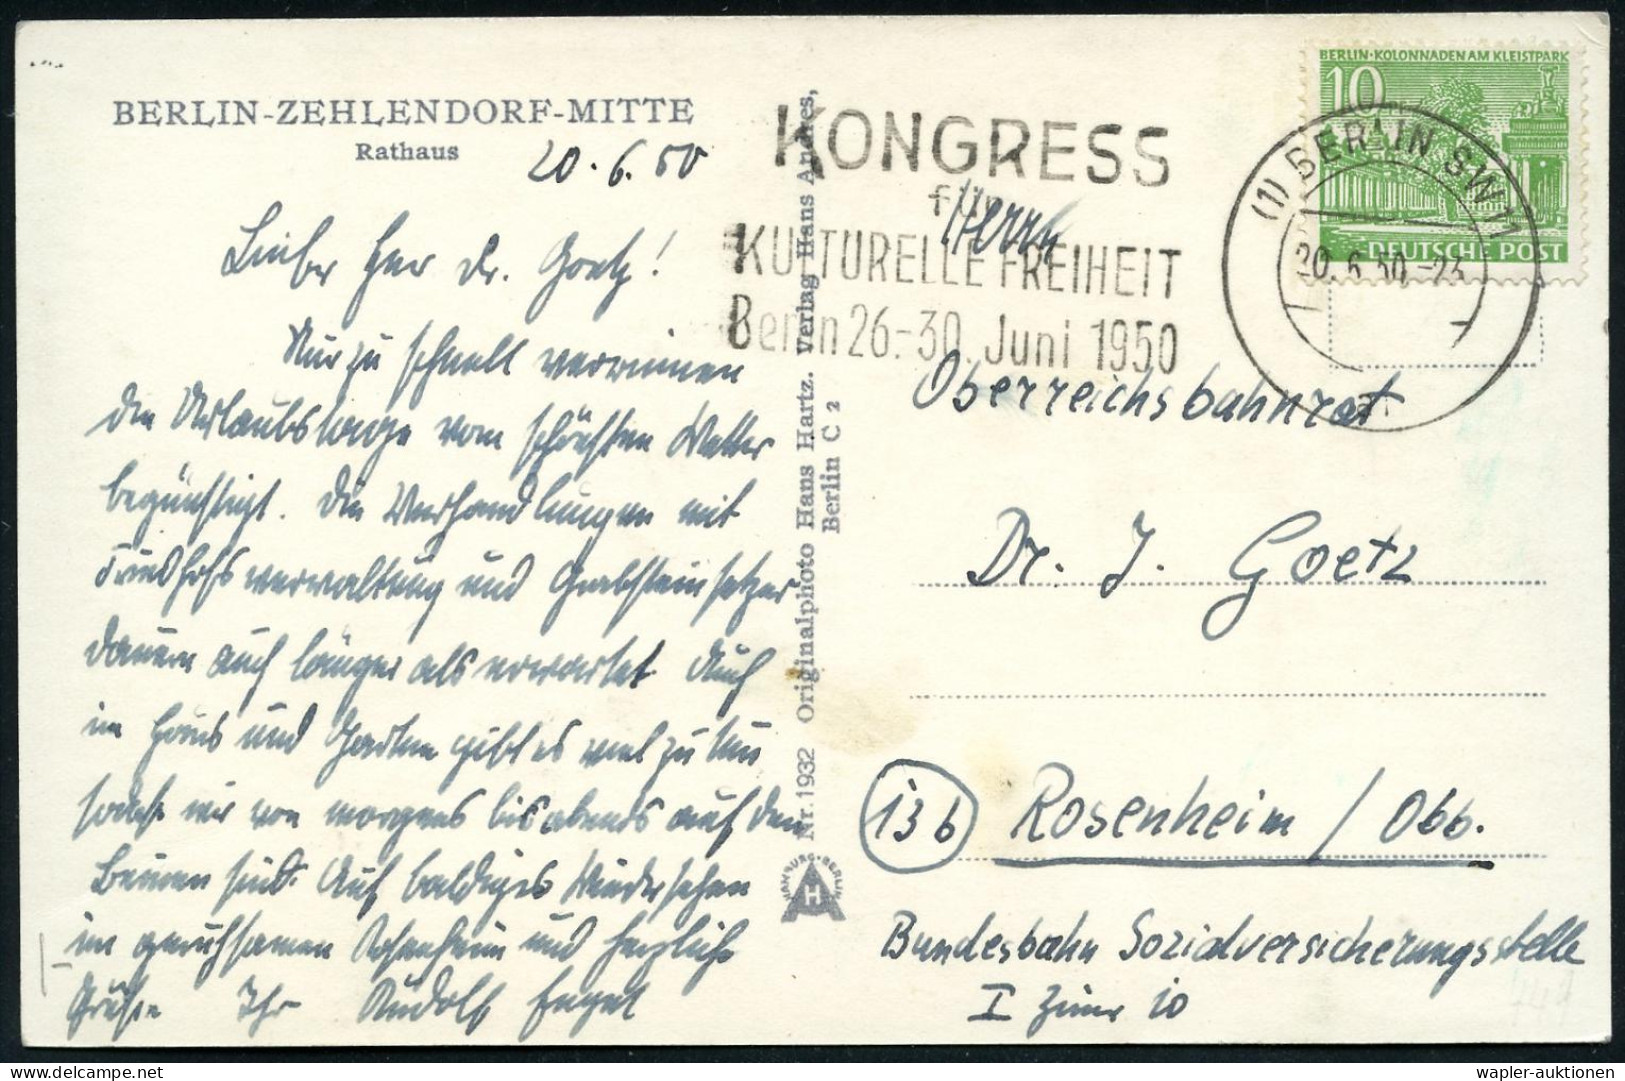 BERLIN-ZEHLENDORF-MITTE
Rathaus
20.6.50
Lieber Herr Dr. Goetz!
Nur zu schnell verrinnen
die Urlaubstage vom schönsten Wetter
begünstigt. Die Verhandlungen mit
Friedhofsverwaltung und Grabsteinsetzer
dauern auch länger als erwartet. Auch
im Haus und Garten gibt es viel zu tun
sodass wir von morgens bis abends auf den
Beinen sind. Auf baldiges Wiedersehen
im geruhsamen Rosenheim und herzliche
Grüße Ihr Rudolf Engel
Nr. 1932 Originalphoto Hans Hartz. Verlag Hans Andres,
Berlin C 2
HAMBURG-BERLIN
AH
KONGRESS
für
KULTURELLE FREIHEIT
Berlin 26.-30. Juni 1950
BERLIN·KOLONNADEN AM KLEISTPARK
10
DEUTSCHE POST
(1) BERLIN SW 11
20.6.50.-23
Herrn
Oberreichsbahnrat
Dr. J. Goetz
13b Rosenheim / Obb.
Bundesbahn Sozialversicherungsstelle
I Zimr 10
wapler-auktionen